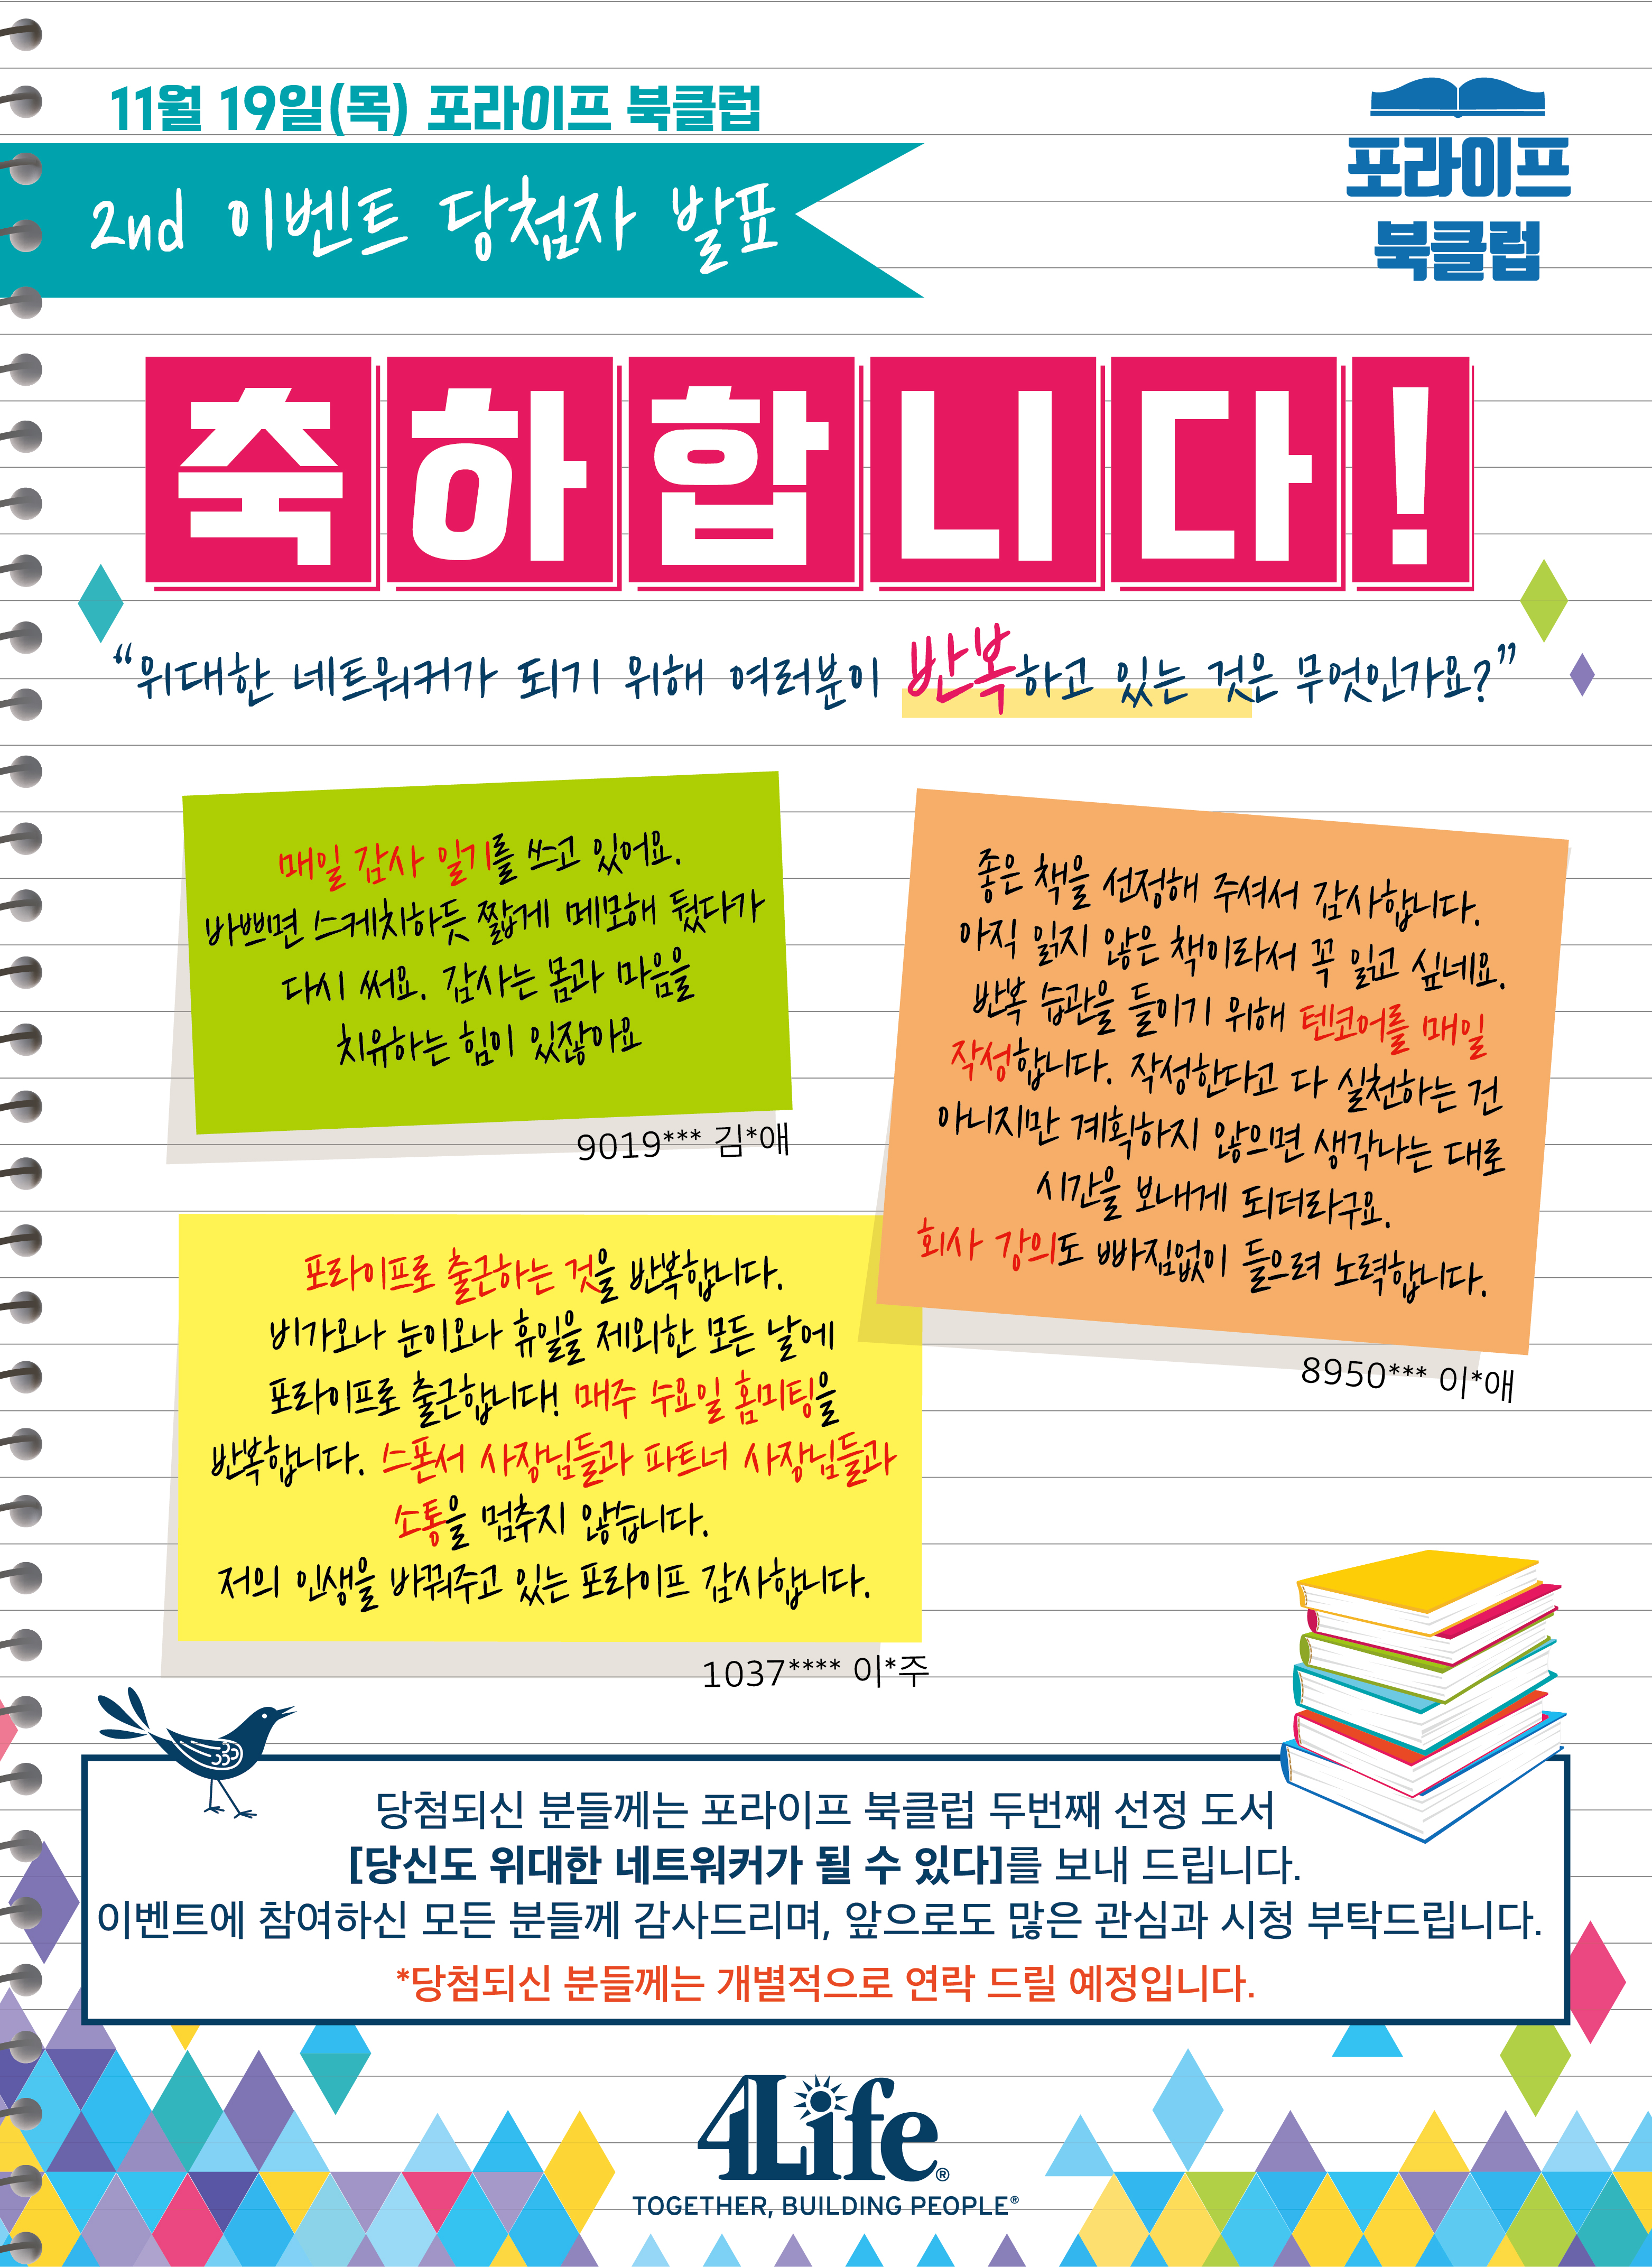 11월 19일(목) 포라이프 북클럽
2nd 이벤트 당첨자 발표
포라이프
북클럽
축하합니다!
“위대한 네트워커가 되기 위해 여러분이 반복하고 있는 것은 무엇인가요?”
매일 감사 일기를 쓰고 있어요.
바쁘면 스케치하듯 짧게 메모해 뒀다가
다시 써요. 감사는 몸과 마음을
치유하는 힘이 있잖아요
9019*** 김*애
좋은 책을 선정해 주셔서 감사합니다.
아직 읽지 않은 책이라서 꼭 읽고 싶네요.
반복 습관을 들이기 위해 텐코어를 매일
작성합니다. 작성한다고 다 실천하는 건
아니지만 계획하지 않으면 생각나는 대로
시간을 보내게 되더라구요.
회사 강의도 빠짐없이 들으려 노력합니다.
8950*** 이*애
포라이프로 출근하는 것을 반복합니다.
비가오나 눈이오나 휴일을 제외한 모든 날에
포라이프로 출근합니다! 매주 수요일 홈미팅을
반복합니다. 스폰서 사장님들과 파트너 사장님들과
소통을 멈추지 않습니다.
저의 인생을 바꿔주고 있는 포라이프 감사합니다.
1037**** 이*주
당첨되신 분들께는 포라이프 북클럽 두번째 선정 도서
[당신도 위대한 네트워커가 될 수 있다]를 보내 드립니다.
이벤트에 참여하신 모든 분들께 감사드리며, 앞으로도 많은 관심과 시청 부탁드립니다.
*당첨되신 분들께는 개별적으로 연락 드릴 예정입니다.
4Life®
TOGETHER, BUILDING PEOPLE®